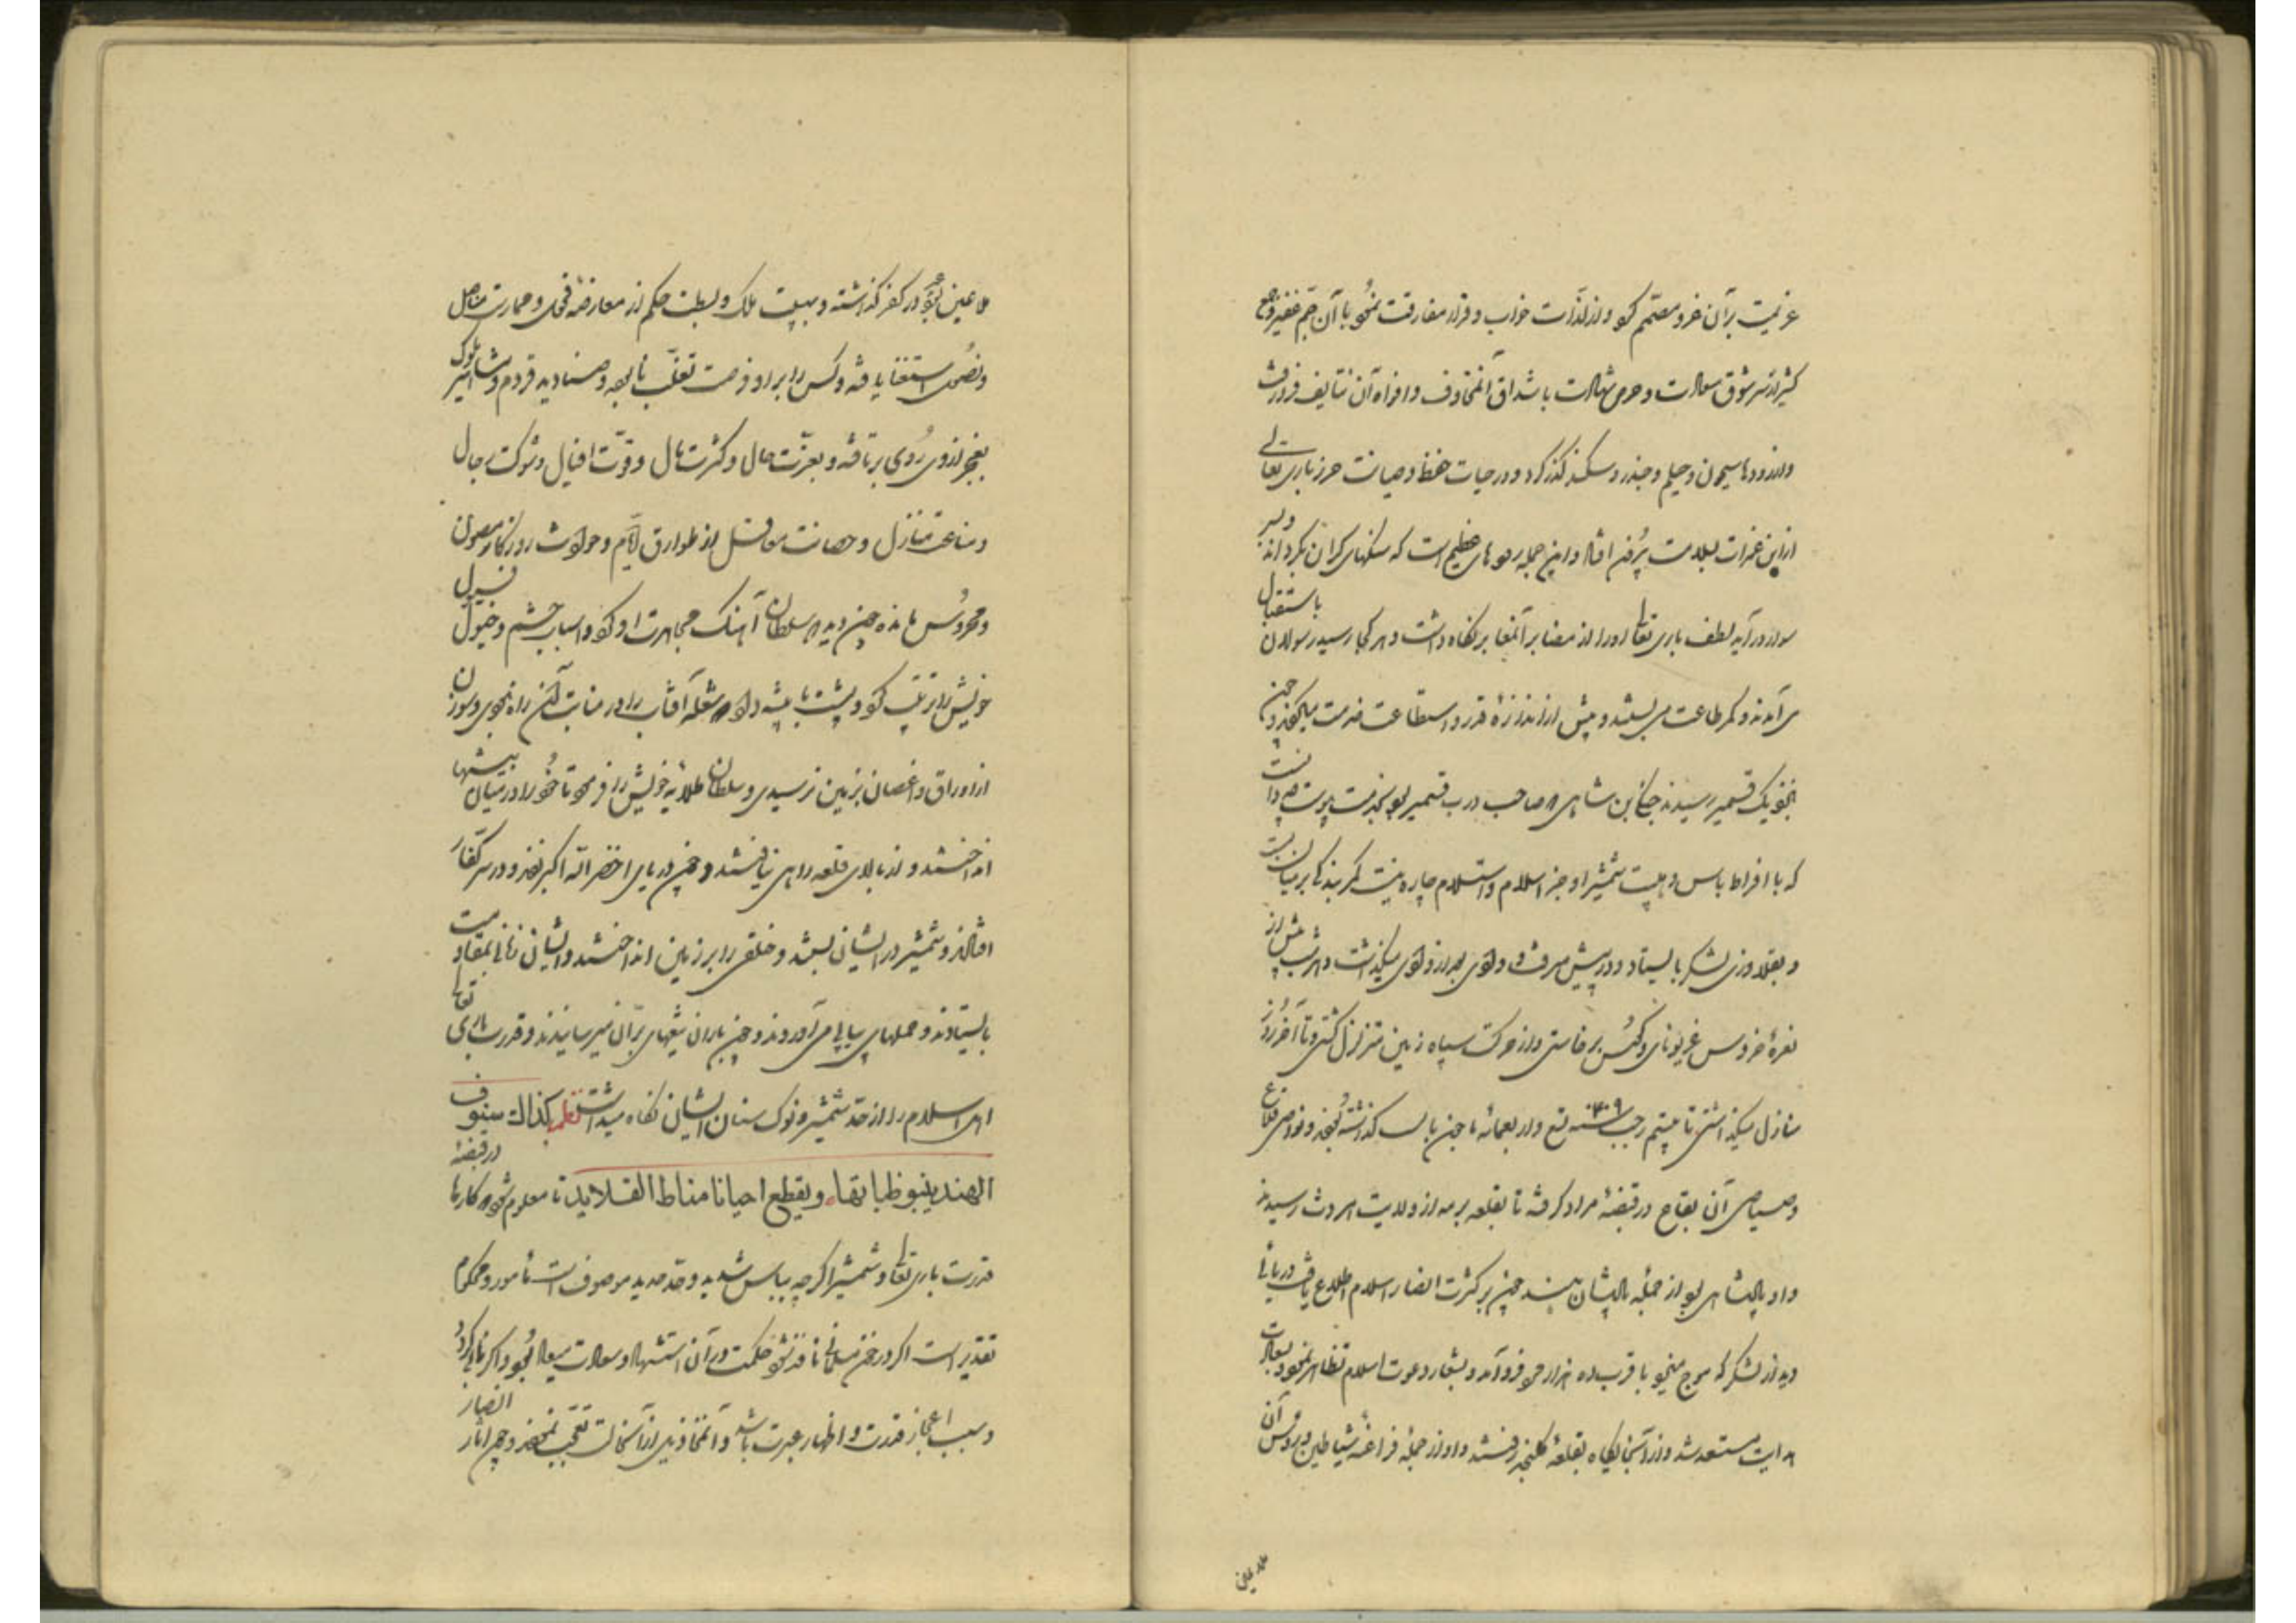 عزیمت بر آن غزو مصمّم کرد و از لذّات خواب و قرار مفارقت نمود با آن جمّ غفیر و جمع
کثیر از سر شوق سعادت و حرص شهادت با شداق آن مخاوف و افواه آن تنایف فرو رفت
و از رودها سیحون و جیلم و چندر و سکند گذر کرد و در حیات حفظ و صیانت حرز باری تعالی
ازین غمرات بسلامت بیرون افتاد و این جمله رودهای عظیم است که سنگهای گران بگرداند و سر
سوار در آید لطف باری تعالی او را از مضایر آن معابر نگاه داشت و هر کجا رسید رسولان باستقبال
می آمدند و کمر طاعت می بستند و پیش از اندازهٔ قدر و استطاعت خدمت میکردند و چون
بنزدیک قشمیر رسیدند جنکی بن شاهی که صاحب درب قشمیر بود بخدمت پیوست چه دانست
که با افراط باس و هیبت شمشیر او جز اسلام و استسلام چاره نیست کمر بندگی بر میان بست
و بقلاوزی لشکر بایستاد و در پیش میرفت و وادی بعد از وادی میگذاشت و هر شب پیش از
نعرهٔ خروس غریو نای و کوس برخاستی و از حرکت سپاه زمین متزلزل گشتی و تا آخر روز
منازل میگذاشتی تا بیستم رجب سنه ۴۰۹ تسع و اربعمائه ماجون باپس گذاشته بودند و نواصی قلاع
و صیاصی آن بقاع در قبضهٔ مراد گرفته تا بقلعه برمه از ولایت هروت رسیدند
و او پادشاهی بود از جمله پادشاهان هند چون بر کثرت انصار اسلام اطلاع یافت دریائی
دید از لشکر که موج میزد با قرب ده هزار مرد فرو آمد و بشعار دعوت اسلام تظاهر نمود و بسعادت
هدایت مستعد شد و از آنجایگاه بقلعهٔ کلچند رفتند و او از جملهٔ فراعنه شیاطین و رؤس آن
ملاعین بود عمر در کفر گذاشته و بهیبت ملک و بسطت حکم از معارضهٔ فحول و ممارست مناصل
و نصول استغنا یافته و کس را بر او فرصت تغلّب نابوده و صنادید قروم و مشاهیر ملوک
بعجز از وی روی برتافته و بعزّت حال و کثرت مال و قوّت افیال و شوکت رجال
و مناعت منازل و حصانت معاقل از طوارق ایّام و حوادث روزگار مصون
و محروس مانده چون دید که سلطان آهنگ مجاهدت او کرد و اسباب حشم و خیول و فیول
خویش را ترتیب کرد و پشت با بیشه داد که شعله آفتاب را در منابت آن راه نبودی و سوزن
از اوراق و اغصان بزمین نرسیدی و سلطان طلایه خویش را فرمود تا خود را در میان بیشها
انداختند و از بالای قلعه راهی یافتند و چون دریای اخضر الله اکبر زدند و در سر کفّار
افتادند و شمشیر در ایشان بستند و خلقی را بر زمین انداختند و ایشان زمانی بمقاومت
بایستادند و حملهای پیاپی می آوردند و چون باران تیغهای برّان میرسانیدند و قدرت باری تعالی
اهل اسلام را از حدّ شمشیر و نوک سنان ایشان نگاه میداشت نظم کذاك سیوف
الهند ینبو ظباتها ویقطع احیانا مناط القلاید تا معلوم شود که کارها در قبضهٔ
قدرت باری تعالی و شمشیر اگر چه بباس شدید و حدّ حدید موصوف است مأمور و محکوم
تقدیر است اگر در خون مسلمانی نافذ شود حکمت در آن استشهاد و سعادت میعاد بود و اگر نابی گردد
و سبب اعجاز قدرت و اظهار عبرت باشد و آن مخاذیل از آنحالت تعجّب نمودند و چون آثار انصار